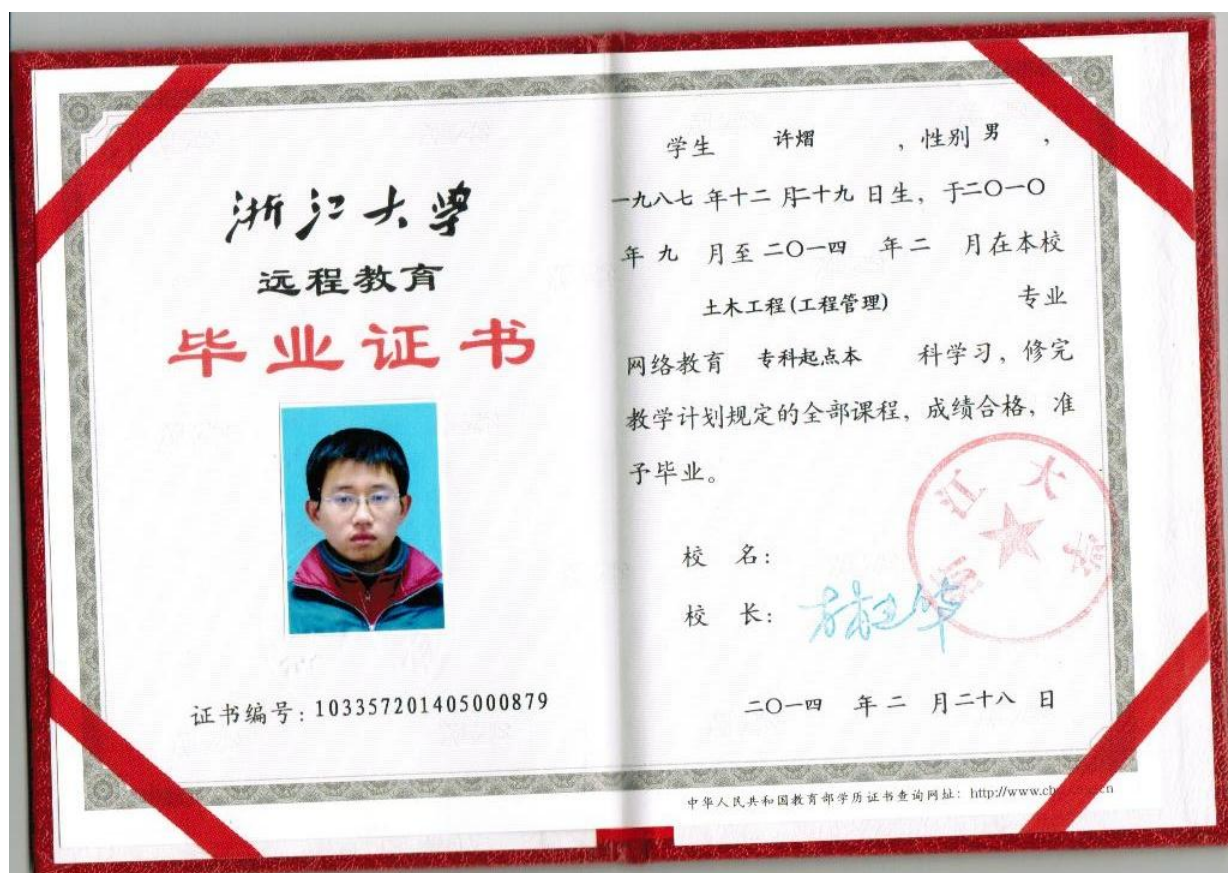 浙江大学
远程教育
毕业证书
证书编号：103357201405000879
学生 许熠 ，性别 男 ，
一九八七 年十二 月二十九 日生，于二〇一〇
年 九 月至 二〇一四 年 二 月在本校
土木工程(工程管理) 专业
网络教育 专科起点本 科学习，修完
教学计划规定的全部课程，成绩合格，准
予毕业。
浙江大学
校 名：
校 长：
二〇一四 年 二 月二十八 日
中华人民共和国教育部学历证书查询网址：http://www.ch